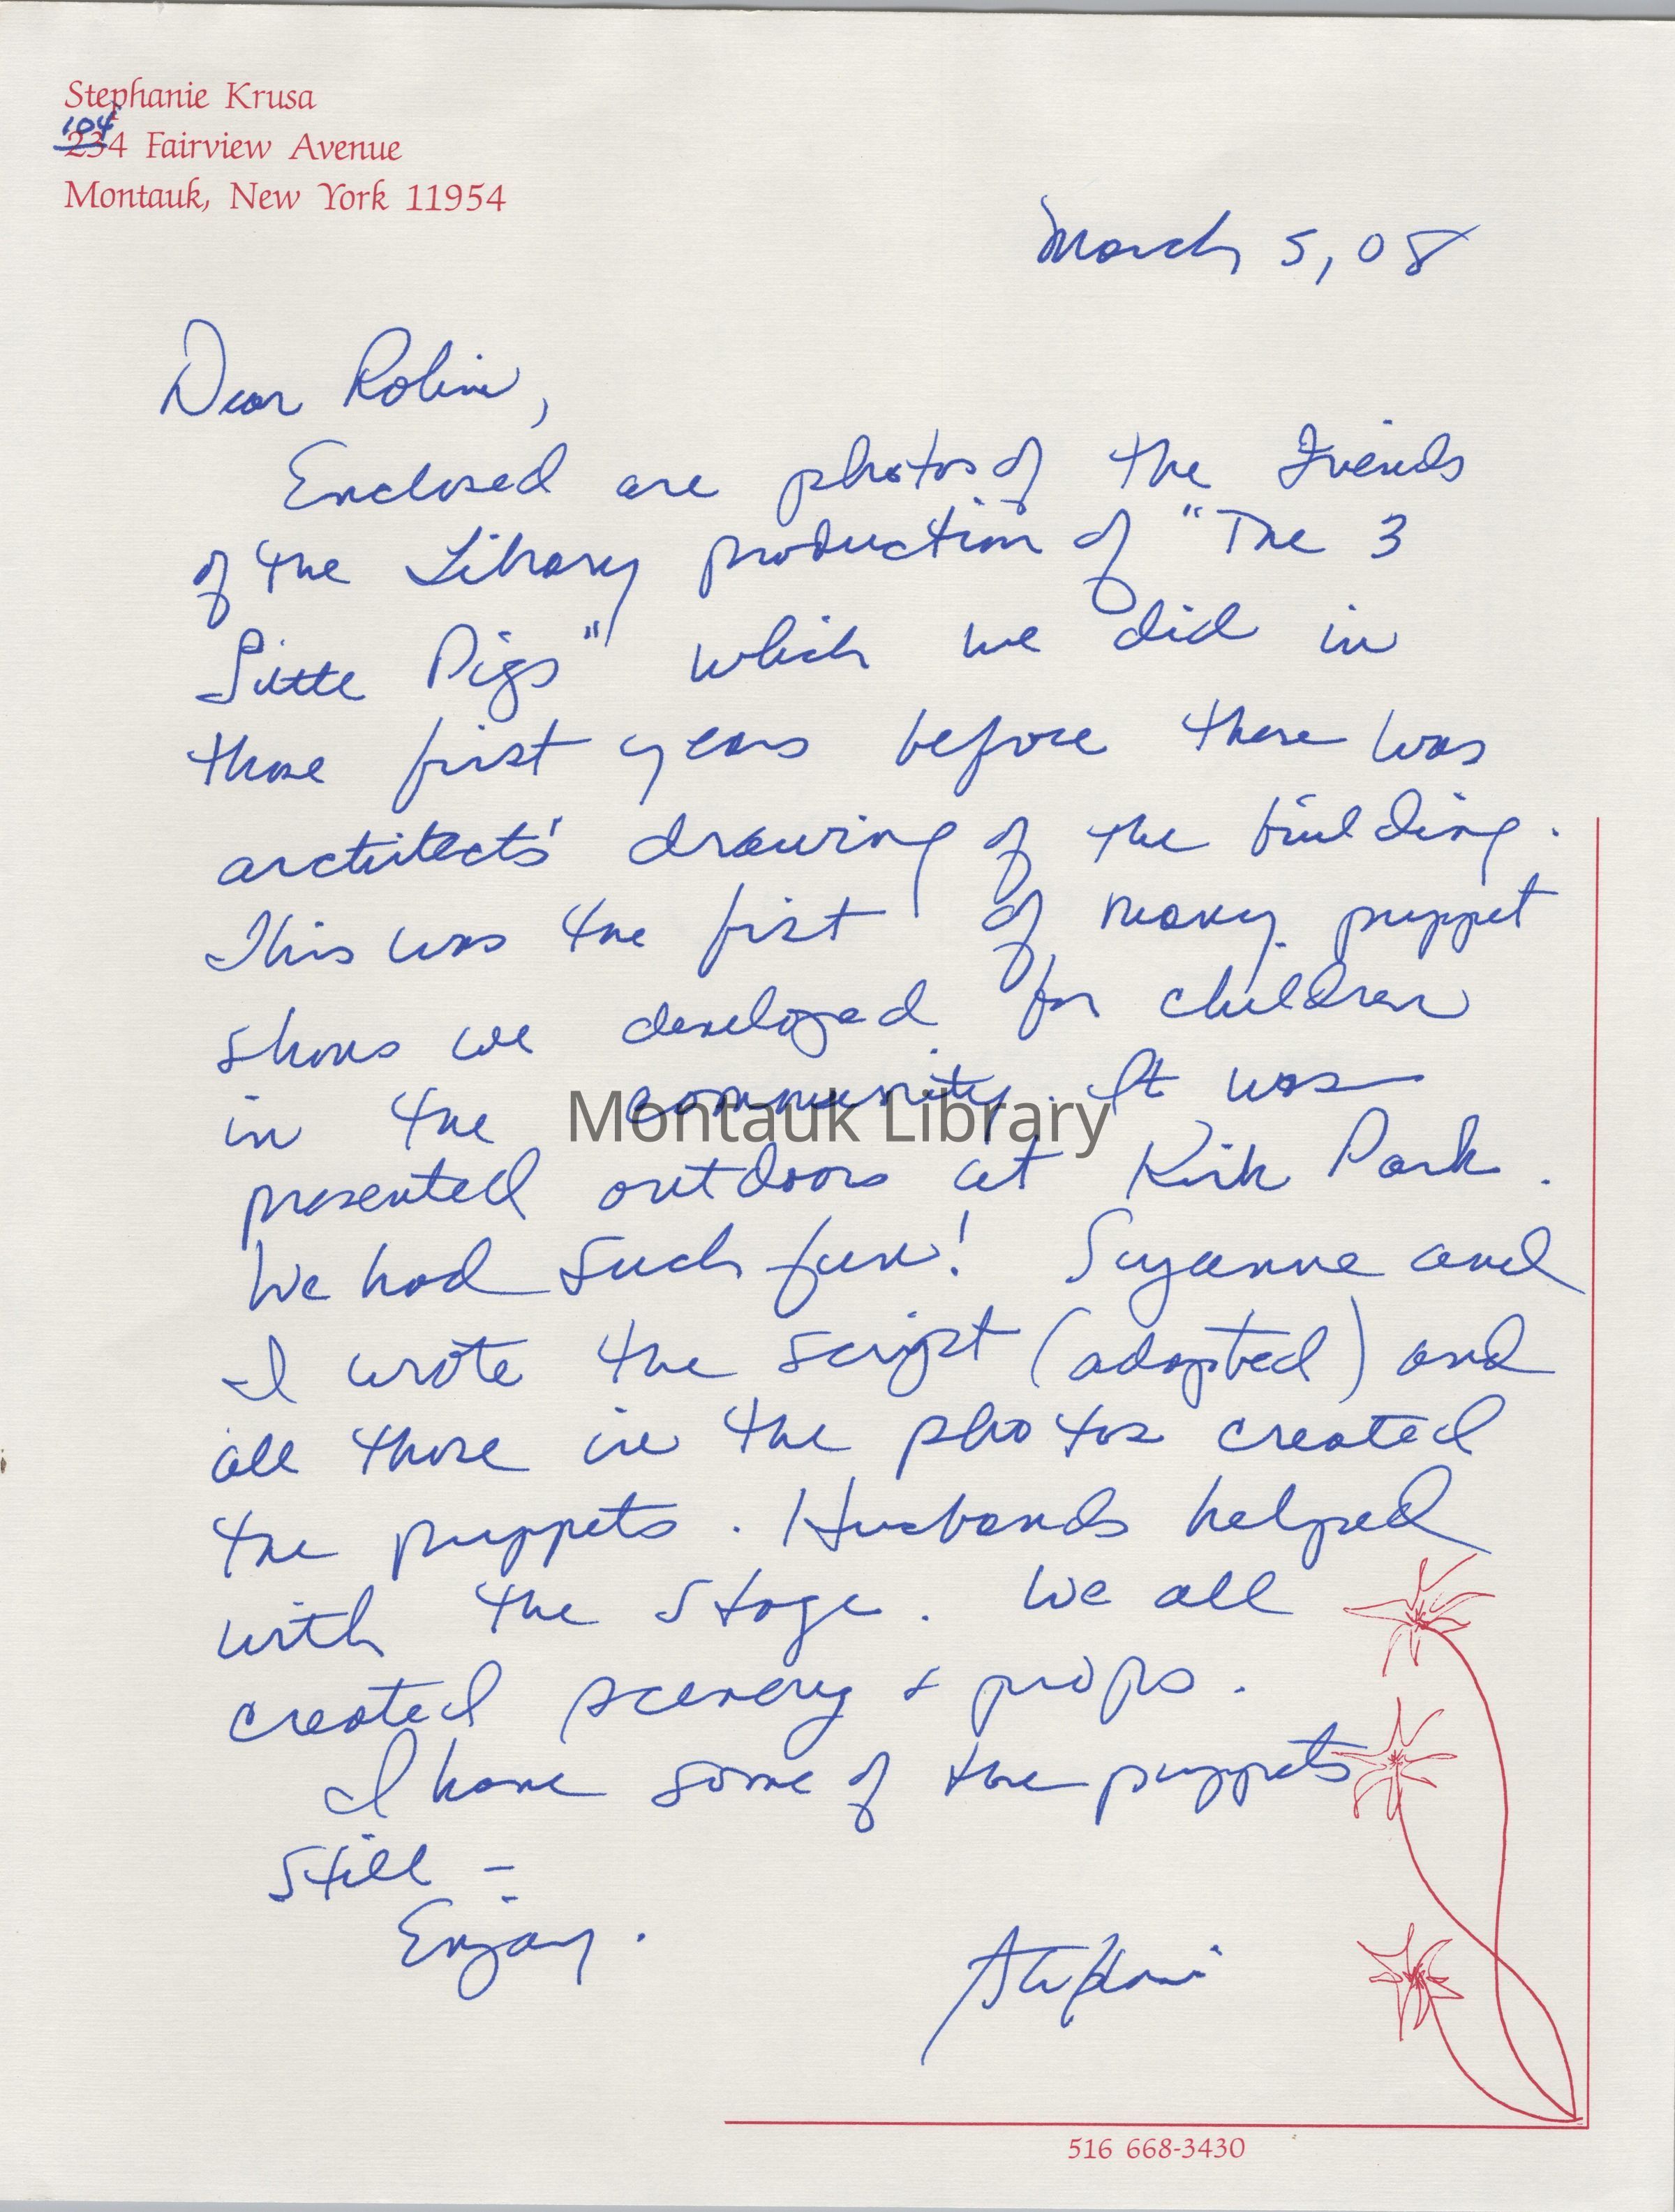 Stephanie Krusa
104
234 Fairview Avenue
Montauk, New York 11954
March 5, 08
Dear Robin,
Enclosed are photos of the Friends
of the Library production of "The 3
Little Pigs" which we did in
those first years before there was
architects' drawing of the building.
This was the first of many puppet
shows we developed for children
in the community. It was
Montauk Library
presented outdoors at Kirk Park.
We had such fun! Suzanne and
I wrote the script (adapted) and
all those in the photos created
the puppets. Husbands helped
with the stage. We all
created scenery + props.
I have some of the puppets
still –
Enjoy.
516 668-3430